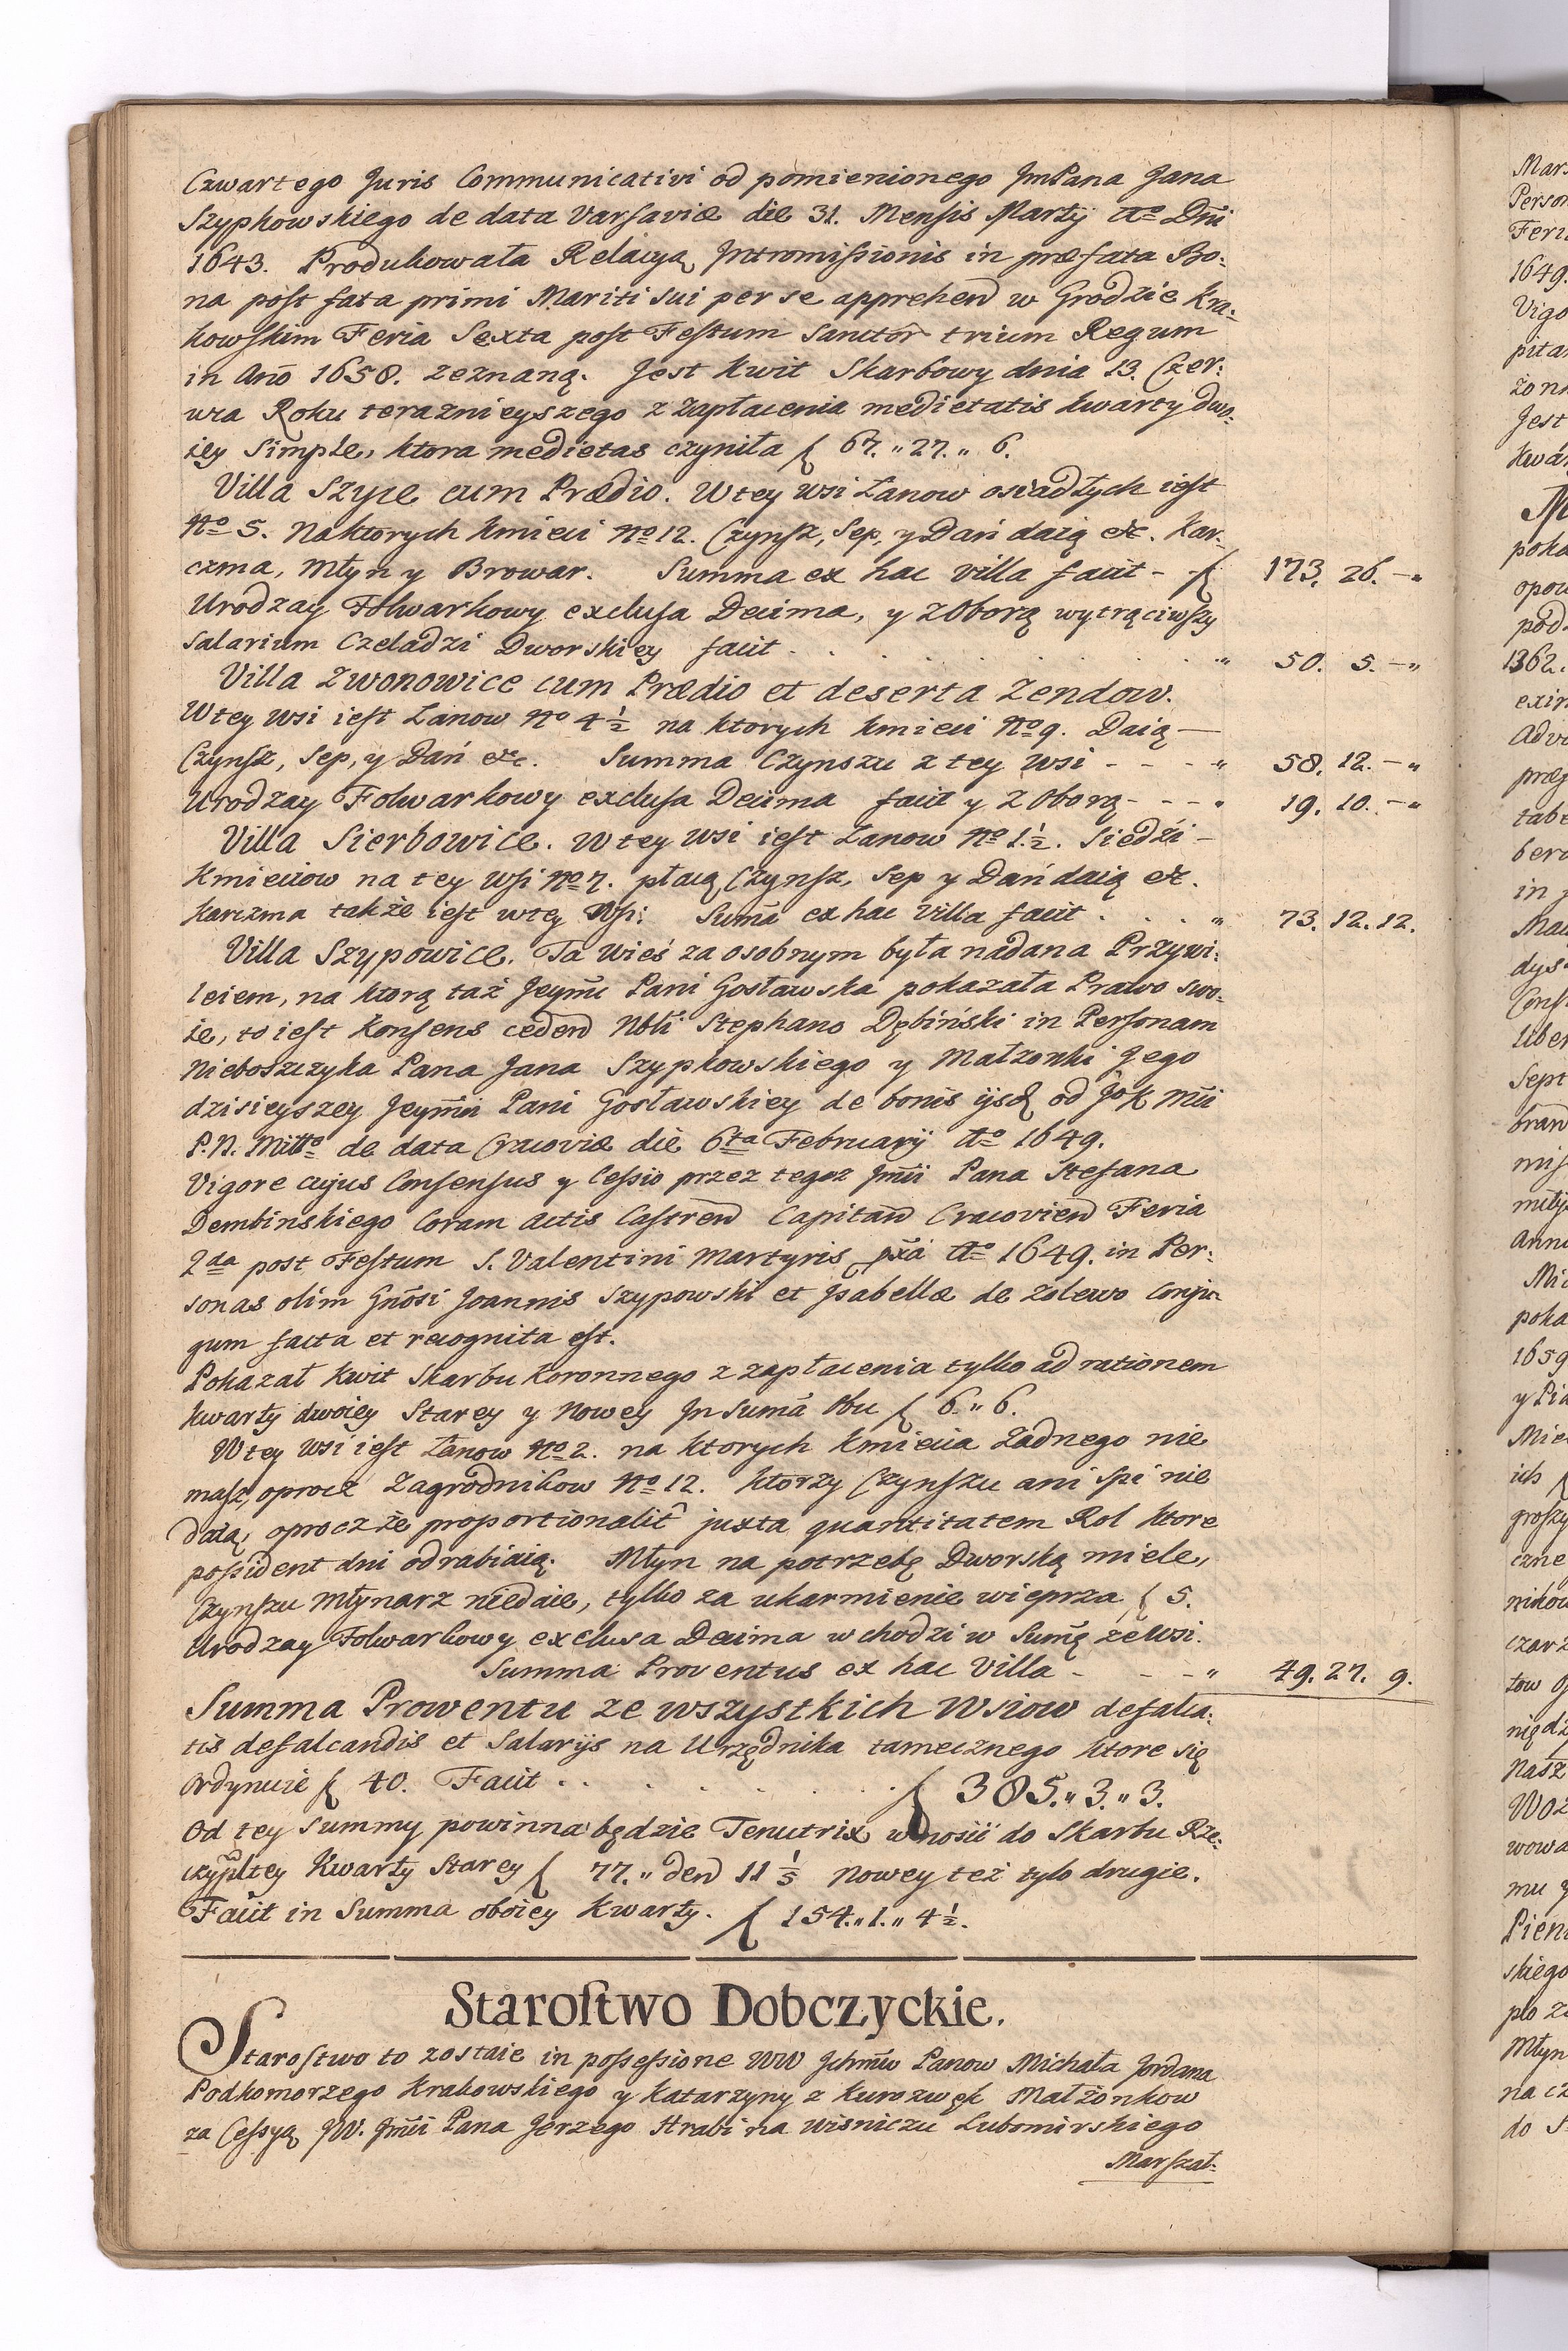 Czwartego Juris Communicativi od pomienionego JmPana Jana
Szypkowskiego de data Varsaviæ die 31. Mensis Martÿ Aº Dñi
1643. Produkowała Relacyą Intromissionis in præfata Bo:
na post fata primi Mariti sui per se apprehen̄ w Grodzie Kra:
kowskim Feria Sexta post Festum Sanctor̄ trium Regum
in Anō 1658. zeznaną. Jest kwit Skarbowy dnia 13. Czer:
wca Roku teraznieyszego z zapłacenia medietatis kwarty dwo:
iey Simplæ, ktora medietas czyniła ƒ 67. " 27. " 6.
Villa Szyce cum Prædio. W tey wsi Łanow osiadłych iest
Nº 5. Na ktorych kmieci Nº 12. Czynsz, Sep, y Dań daią &c. Kar:
czma, Młyn y Browar. Summa ex hac villa facit - ƒ 173. 26. - "
Urodzay Folwarkowy exclusa Decima, y z Oborą wytrąciwszy
Salarium Czeladzi Dworskiey facit . . . . . . " 50. 5. - "
Villa Zwonowice cum Prædio et deserta Zendow.
W tey wsi iest Łanow Nº 4 ½ na ktorych kmieci Nº 9. Daią —
Czynsz, Sep, y Dań &c. Summa Czynszu z tey wsi - - - " 58. 12. - "
Urodzay Folwarkowy exclusa Decima facit y z Oborą - - - " 19. 10. - "
Villa Sierbowice. W tey wsi iest Łanow Nº 1. ½. Siedzi -
Kmieciow na tey wsi Nº 7. płacą Czynsz, Sep y Dań daią &c.
Karczma także iest w tey Wsi: Sum̄a ex hac villa facit . . . " 73. 12. 12.
Villa Szypowice. Ta wieś za osobnym była nadana Przywi:
leiem, na ktorą taż Jeym̄ć Pani Gosławska pokazała Prawo swo:
ie, to iest Konsens ceden̄ Nbłi Stephano Dębiński in Personam
Nieboszczyka Pana Jana Szypkowskiego y Małzonki Jego
dzisieyszey Jeym̄ci Pani Gosławskiey de bonis ijsd od Jº K Mci
P. N. Mttº de data Cracoviæ die 6ta Februarÿ Aº 1649.
Vigore cujus Consensus y Cessio przez tegoz Jm̄ci Pana Stefana
Dembinskiego Coram Actis Castren̄ Capitan̄ Cracovien̄ Feria
2da post Festum S. Valentini Martyris px̄a Aº 1649. in Per:
sonas olim Gnōsi Joannis Szypowski et Isabellæ de Zolewo Conju
gum facta et recognita est.
Pokazał kwit Skarbu Koronnego z zapłacenia tylko ad rationem
kwarty dwoiey Starey y Nowey In Sum̄a Obu ƒ 6. " 6.
W tey wsi iest Łanow Nº 2. na ktorych kmiecia Żadnego nie
masz, oprocz Zagrodnikow Nº 12. ktorzy Czynszu ani Spi nie
daią, oprocz że proportionalit̂ juxta quantitatem Rol ktore
possident dni odrabiaią. Młyn na potrzebę Dworską miele,
Czynszu Młynarz niedaie, tylko za ukarmienie wieprza ƒ 5.
Urodzay Folwarkowy exclusa Decima wchodzi w Sum̄ę ze wsi.
Summa Proventus ex hac Villa - - - " 49. 27. 9.
Summa Prowentu ze wszystkich Wsiow defalca:
tis defalcandis et Salarijs na Urzędnika tamecznego ktore się
Ordynuie ƒ 40. Facit . . . . . . . ƒ 385. " 3. " 3.
Od tey Summy powinna będzie Tenutrix wnosić do Skarbu Rze:
czypltey Kwarty Starey ƒ 77. " den̄ 11 ⅕ Nowey też tylo drugie.
Facit in Summa oboiey Kwarty. ƒ 154. " 1. " 4 ½.
Starostwo Dobczyckie.
Starostwo to zostaie in possessione WW Jchm̄ciow Panow Michała Jordana
Podkomorzego Krakowskiego y Katarzyny z Kurozwęk Małżonkow
za Cessyą JW. Jm̄ci Pana Jerzego Hrabi na Wisniczu Lubomirskiego
Marszał: